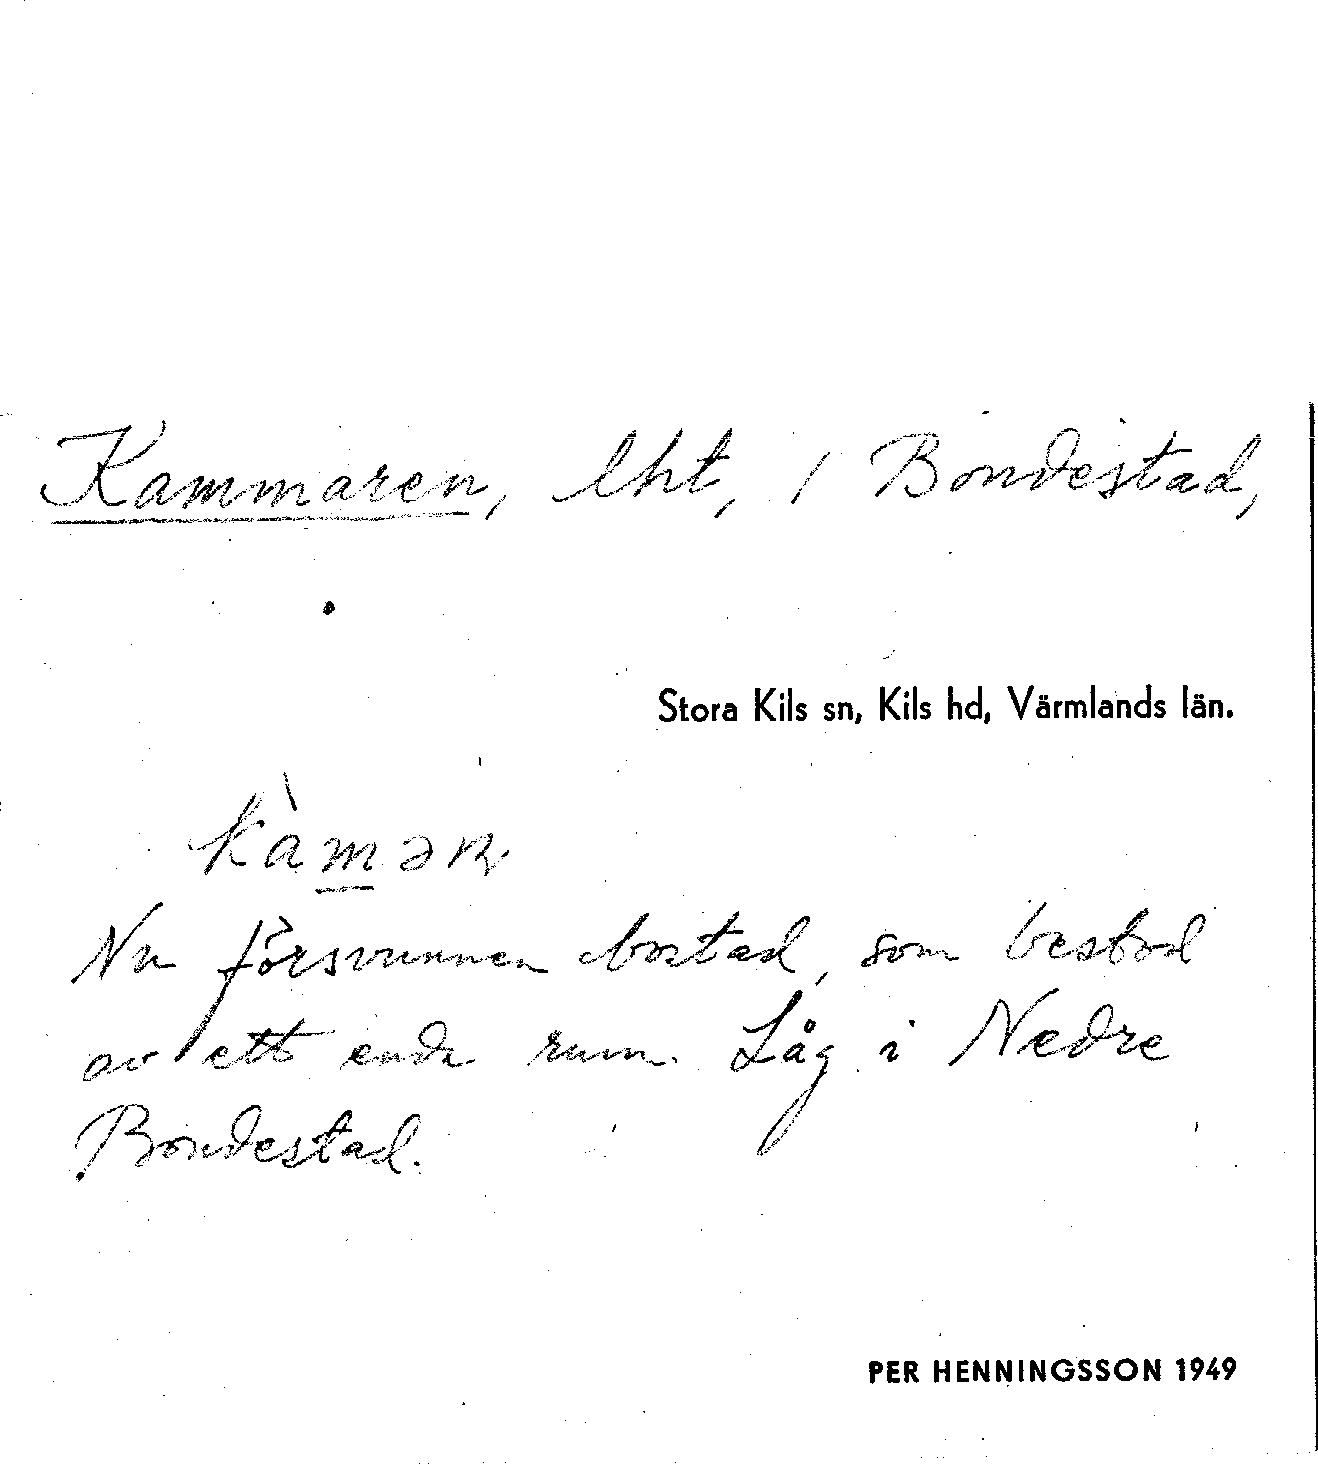 Kammaren, lht, / Bondestad,
Stora Kils sn, Kils hd, Värmlands län.
Nu försvunnen bostad, som bestod
av ett enda rum. Låg i Nedre
Bondestad.
PER HENNINGSSON 1949